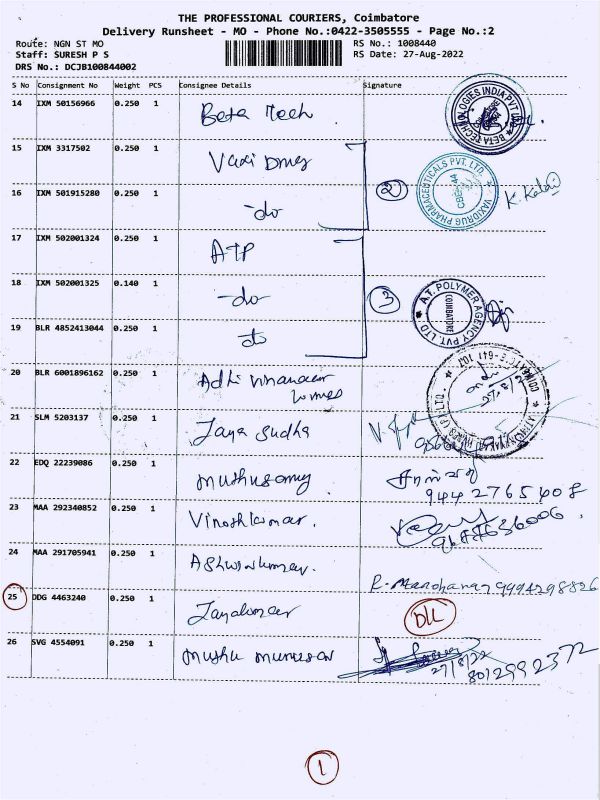 THE PROFESSIONAL COURIERS, Coimbatore
Delivery Runsheet - MO - Phone No.:0422-3505555 - Page No.:2
Route: NGN ST MO
Staff: SURESH P S
DRS No.: DCJB100844002
RS No.: 1008440
RS Date: 27-Aug-2022
S No Consignment No Weight PCS Consignee Details Signature
14 IXM 50156966 0.250 1 Beta Tech
BETA TECHNOLOGIES INDIA PVT LTD
15 IXM 3317502 0.250 1
16 IXM 501915280 0.250 1 -do
2
VAXIDRUG PHARMACEUTICALS PVT. LTD.
CBE-44
17 IXM 502001324 0.250 1 ATP
18 IXM 502001325 0.140 1 -do-
3
A.T. POLYMER AGENCY PVT. LTD
COIMBATORE
19 BLR 4852413044 0.250 1 do
20 BLR 6001896162 0.250 1
21 SLM 5203137 0.250 1 Jaya Sudha
22 EDQ 22239086 0.250 1 muthusamy
9442765408
23 MAA 292340852 0.250 1 Vinothkumar.
24 MAA 291705941 0.250 1 Ashwinkumar.
R. Manoharan 9994298826
25 DDG 4463240 0.250 1 Jayakumar
26 SVG 4554091 0.250 1
27/8/22
8012992372
1